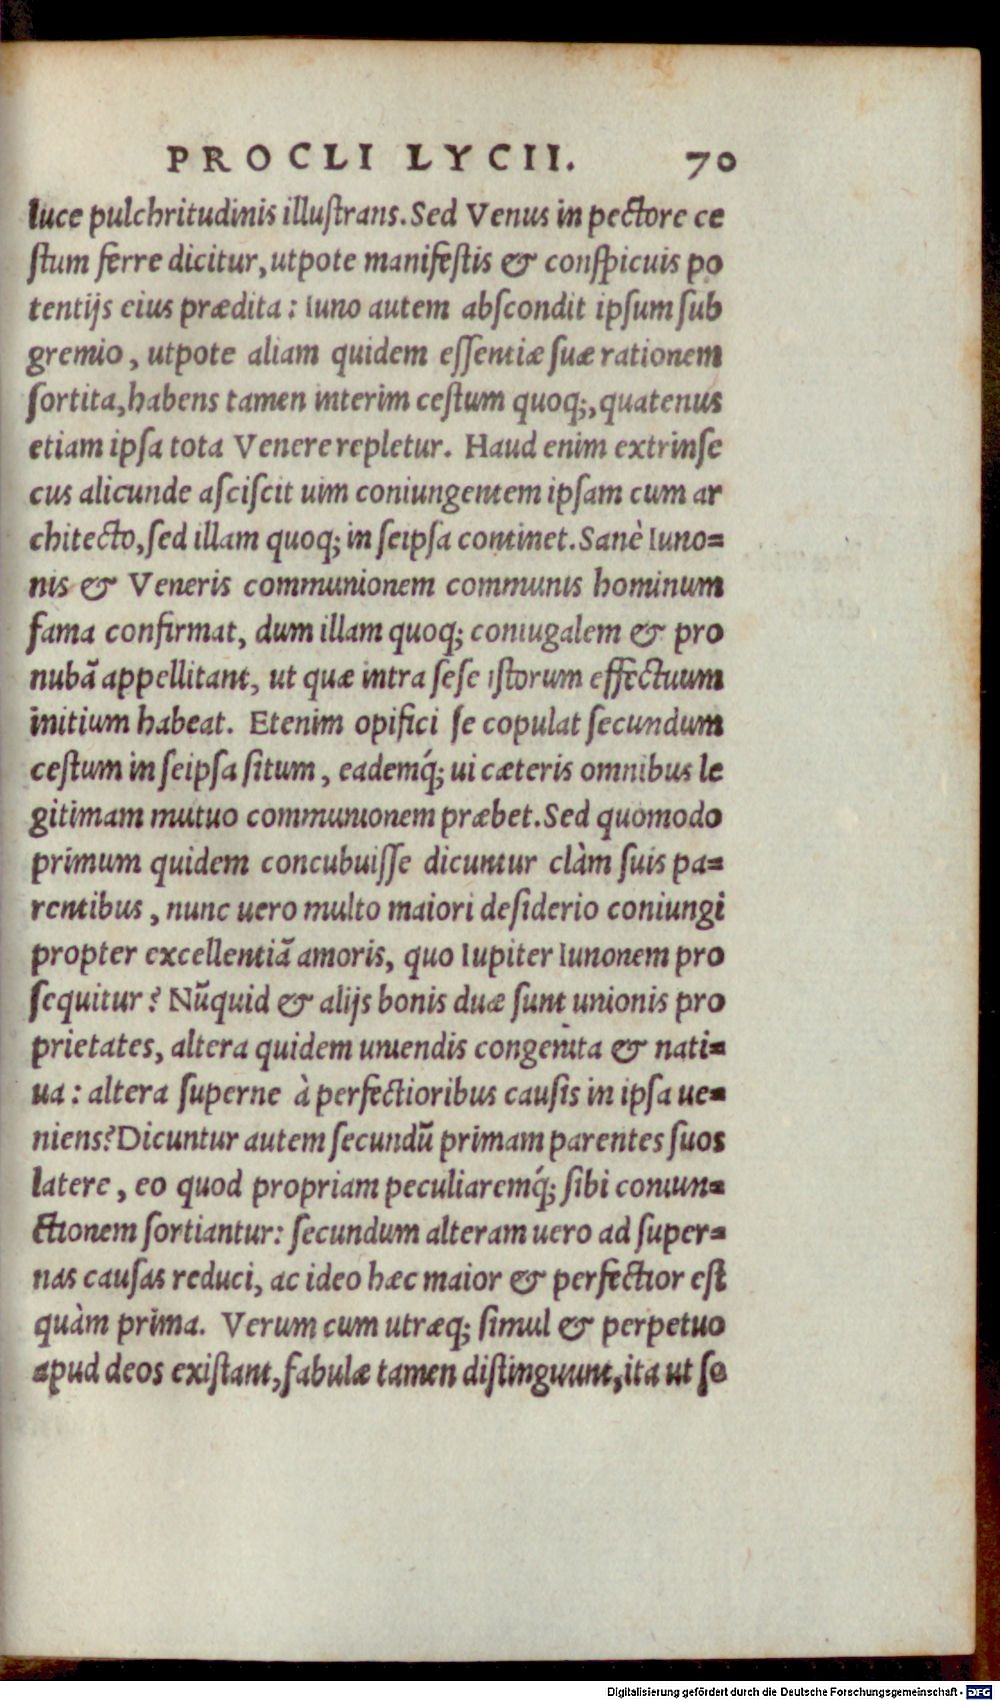 PROCLI LYCII. 70
luce pulchritudinis illuſtrans. Sed Venus in pectore ce
ſtum ferre dicitur, utpote manifeſtis & conſpicuis po
tentijs eius prædita: Iuno autem abſcondit ipſum ſub
gremio, utpote aliam quidem eſſentiæ ſuæ rationem
ſortita, habens tamen interim ceſtum quoq;, quatenus
etiam ipſa tota Venere repletur. Haud enim extrinſe
cus alicunde aſciſcit uim coniungentem ipſam cum ar
chitecto, ſed illam quoq; in ſeipſa continet. Sanè Iuno=
nis & Veneris communionem communis hominum
fama confirmat, dum illam quoq; coniugalem & pro
nubā appellitant, ut quæ intra ſeſe iſtorum effectuum
initium habeat. Etenim opifici ſe copulat ſecundum
ceſtum in ſeipſa ſitum, eademq́; ui cæteris omnibus le
gitimam mutuo communionem præbet. Sed quomodo
primum quidem concubuiſſe dicuntur clàm ſuis pa=
rentibus, nunc uero multo maiori deſiderio coniungi
propter excellentiā amoris, quo Iupiter Iunonem pro
ſequitur? Nūquid & alijs bonis duæ ſunt unionis pro
prietates, altera quidem uniendis congenita & nati=
ua: altera ſuperne à perfectioribus cauſis in ipſa ue=
niens? Dicuntur autem ſecundū primam parentes ſuos
latere, eo quod propriam peculiaremq́; ſibi coniun=
ctionem ſortiantur: ſecundum alteram uero ad ſuper=
nas cauſas reduci, ac ideo hæc maior & perfectior eſt
quàm prima. Verum cum utræq; ſimul & perpetuo
apud deos exiſtant, fabulæ tamen diſtinguunt, ita ut ſe
Digitalisierung gefördert durch die Deutsche Forschungsgemeinschaft - DFG